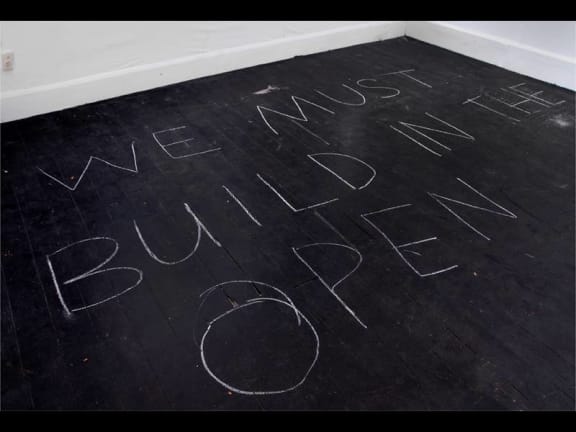 WE MUST
BUILD IN THE
OPEN